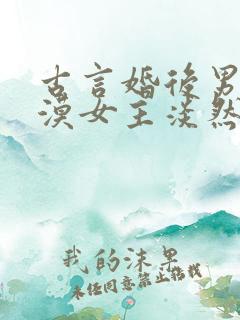 古言婚后男
漠女主淡然
我的沫果
未经同意禁止搭载